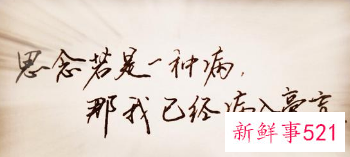 思念若是一种病,
那我已经病入膏肓
新鲜事521